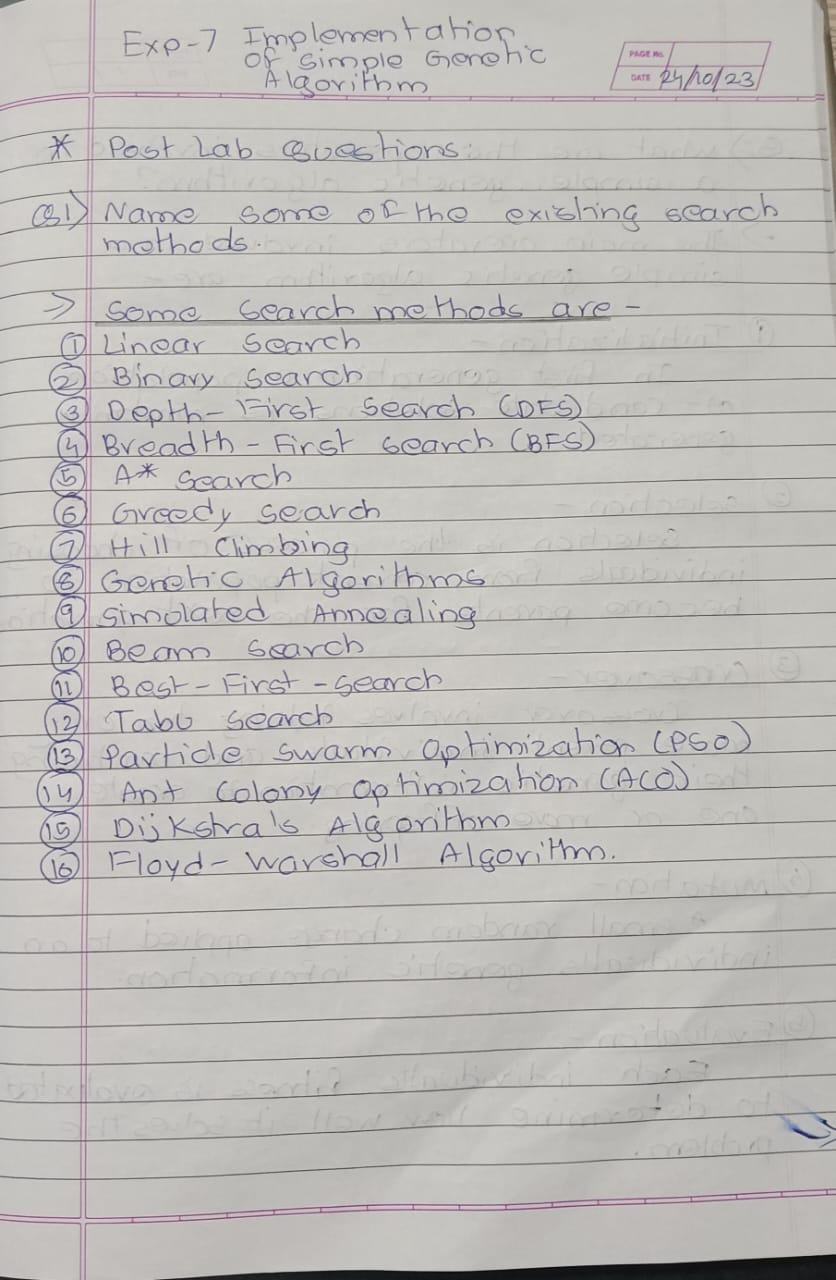 Exp-7 Implementation
of Simple Genetic
Algorithm
PAGE No.
DATE 24/10/23
* Post Lab Questions:
Q1) Name some of the existing search
methods.
→ Some Search methods are -
① Linear Search
② Binary Search
③ Depth-First Search (DFS)
④ Breadth-First Search (BFS)
⑤ A* Search
⑥ Greedy Search
⑦ Hill Climbing
⑧ Genetic Algorithms
⑨ Simulated Annealing
⑩ Beam Search
⑪ Best-First-Search
⑫ Tabu Search
⑬ Particle Swarm Optimization (PSO)
⑭ Ant Colony Optimization (ACO)
⑮ Dijkstra's Algorithm
⑯ Floyd-Warshall Algorithm.